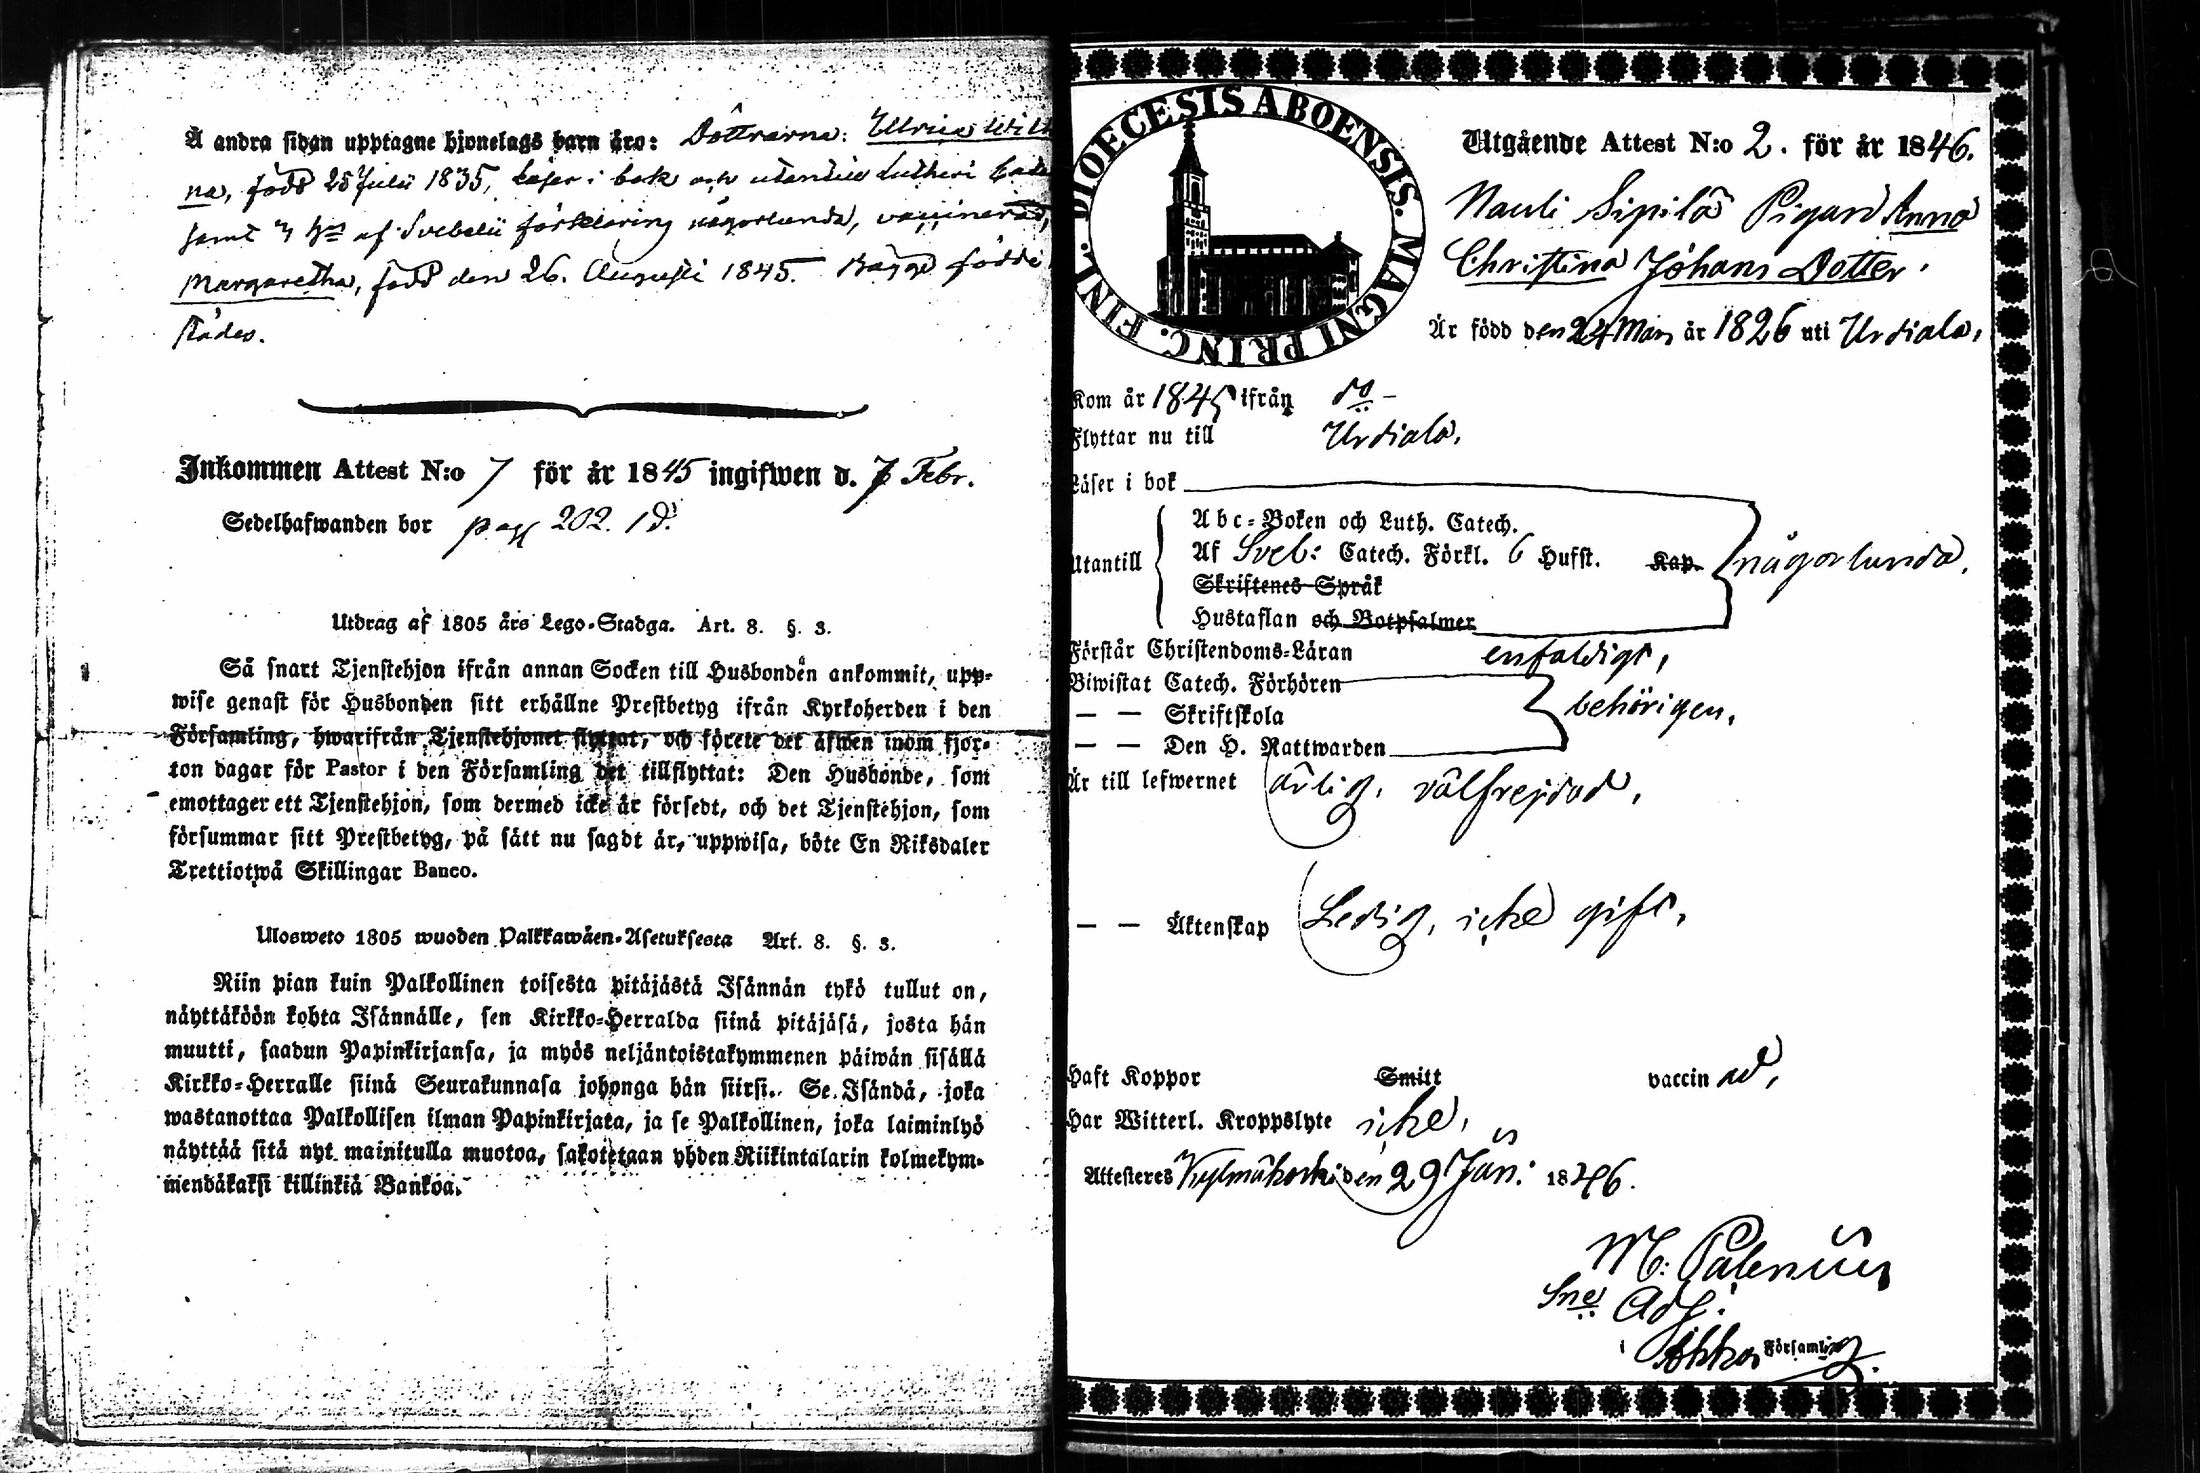 Å andra sidan upptagne hjonelags barn äro: Döttrarna: Ulrica Wilh
na, född 25 Julii 1835, läser i bok och utantill Lutheri Cate
samt af Svebelii förklaring någorlunda, vaccinerad,
Margaretha, född den 26. Augusti 1845. Bägge födde
städes.
Inkommen Attest N:o 7 för år 1845 ingifwen d. 7 Febr.
Sedelhafwanden bor pag 202. 1 d.
Utdrag af 1805 års Lego-Stadga. Art. 8. §. 3.
Så snart Tjenstehjon ifrån annan Socken till Husbonden ankommit, upp-
wise genast för Husbonden sitt erhållne Prestbetyg ifrån Kyrkoherden i den
Församling, hwarifrån Tjenstehjonet flyttat, och förete det äfwen inom fjor-
ton dagar för Pastor i den Församling det tillflyttat: Den Husbonde, som
emottager ett Tjenstehjon, som dermed icke är försedt, och det Tjenstehjon, som
försummar sitt Prestbetyg, på sätt nu sagdt är, uppwisa, böte En Riksdaler
Trettiotwå Skillingar Banco.
Ulosweto 1805 wuoden Palkkawäen-Asetuksesta Art. 8. §. 3.
Niin pian kuin Palkollinen toisesta pitäjästä Isännän tykö tullut on,
näyttäköön kohta Isännälle, sen Kirkko-Herralda siinä pitäjäsä, josta hän
muutti, saadun Papinkirjansa, ja myös neljäntoistakymmenen päiwän sisällä
Kirkko-Herralle siinä Seurakunnasa johonga hän siirsi. Se Isändä, joka
wastanottaa Palkollisen ilman Papinkirjata, ja se Palkollinen, joka laiminlyö
näyttää sitä nyt mainitulla muotoa, sakotetaan yhden Riikintalarin kolmekym-
mendäkaksi killinkiä Bankoa.
DIOECESIS ABOENSIS. MAGNI PRINC. FINL.
Utgående Attest N:o 2. för år 1846.
Nauli Sipilä Pigan Anna
Christina Johans Dotter.
Är född den 24 Mars år 1826 uti Urdiala,
Kom år 1845 ifrån do
Flyttar nu till Urdiala.
Läser i bok
Utantill
Abc-Boken och Luth. Catech.
Af Sveb: Catech. Förkl. 6 Hufst. Kap. någorlunda.
Skriftenes Språk
Hustaflan och Botpsalmer
Förstår Christendoms-Läran enfaldigt,
Biwistat Catech. Förhören
— — Skriftskola behörigen,
— — Den H. Nattwarden
Är till lefwernet ärlig, välfrejdad,
— — Äktenskap Ledig, icke gift,
Haft Koppor Smitt vaccinad,
Har Witterl. Kroppslyte icke,
Attesteras Kylmäkoski den 29 Jan: 1846.
M: Palenius
Sne Adj:
i Akkas Församling.